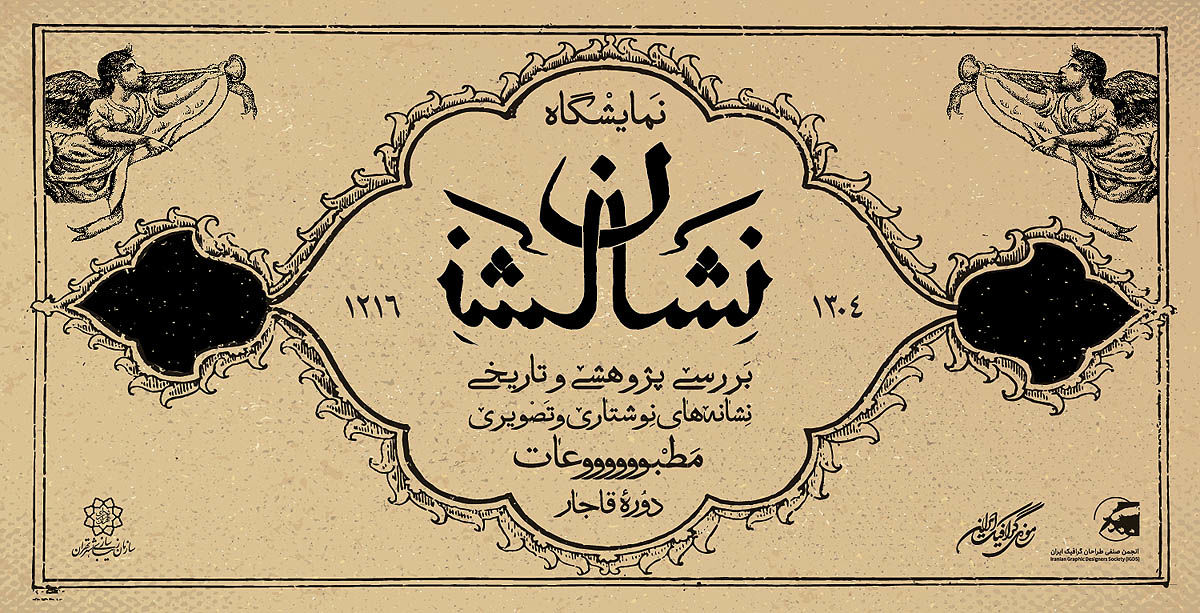 نمایشگاه
نشان
۱۳۰۴
۱۲۱۶
بررسی پژوهشی و تاریخی
نشانه‌های نوشتاری و تصویری
مطبوووووووعات
دورهٔ قاجار
سازمان زیباسازی شهر تهران
موزه گرافیک ایران
انجمن صنفی طراحان گرافیک ایران
Iranian Graphic Designers Society (IGDS)